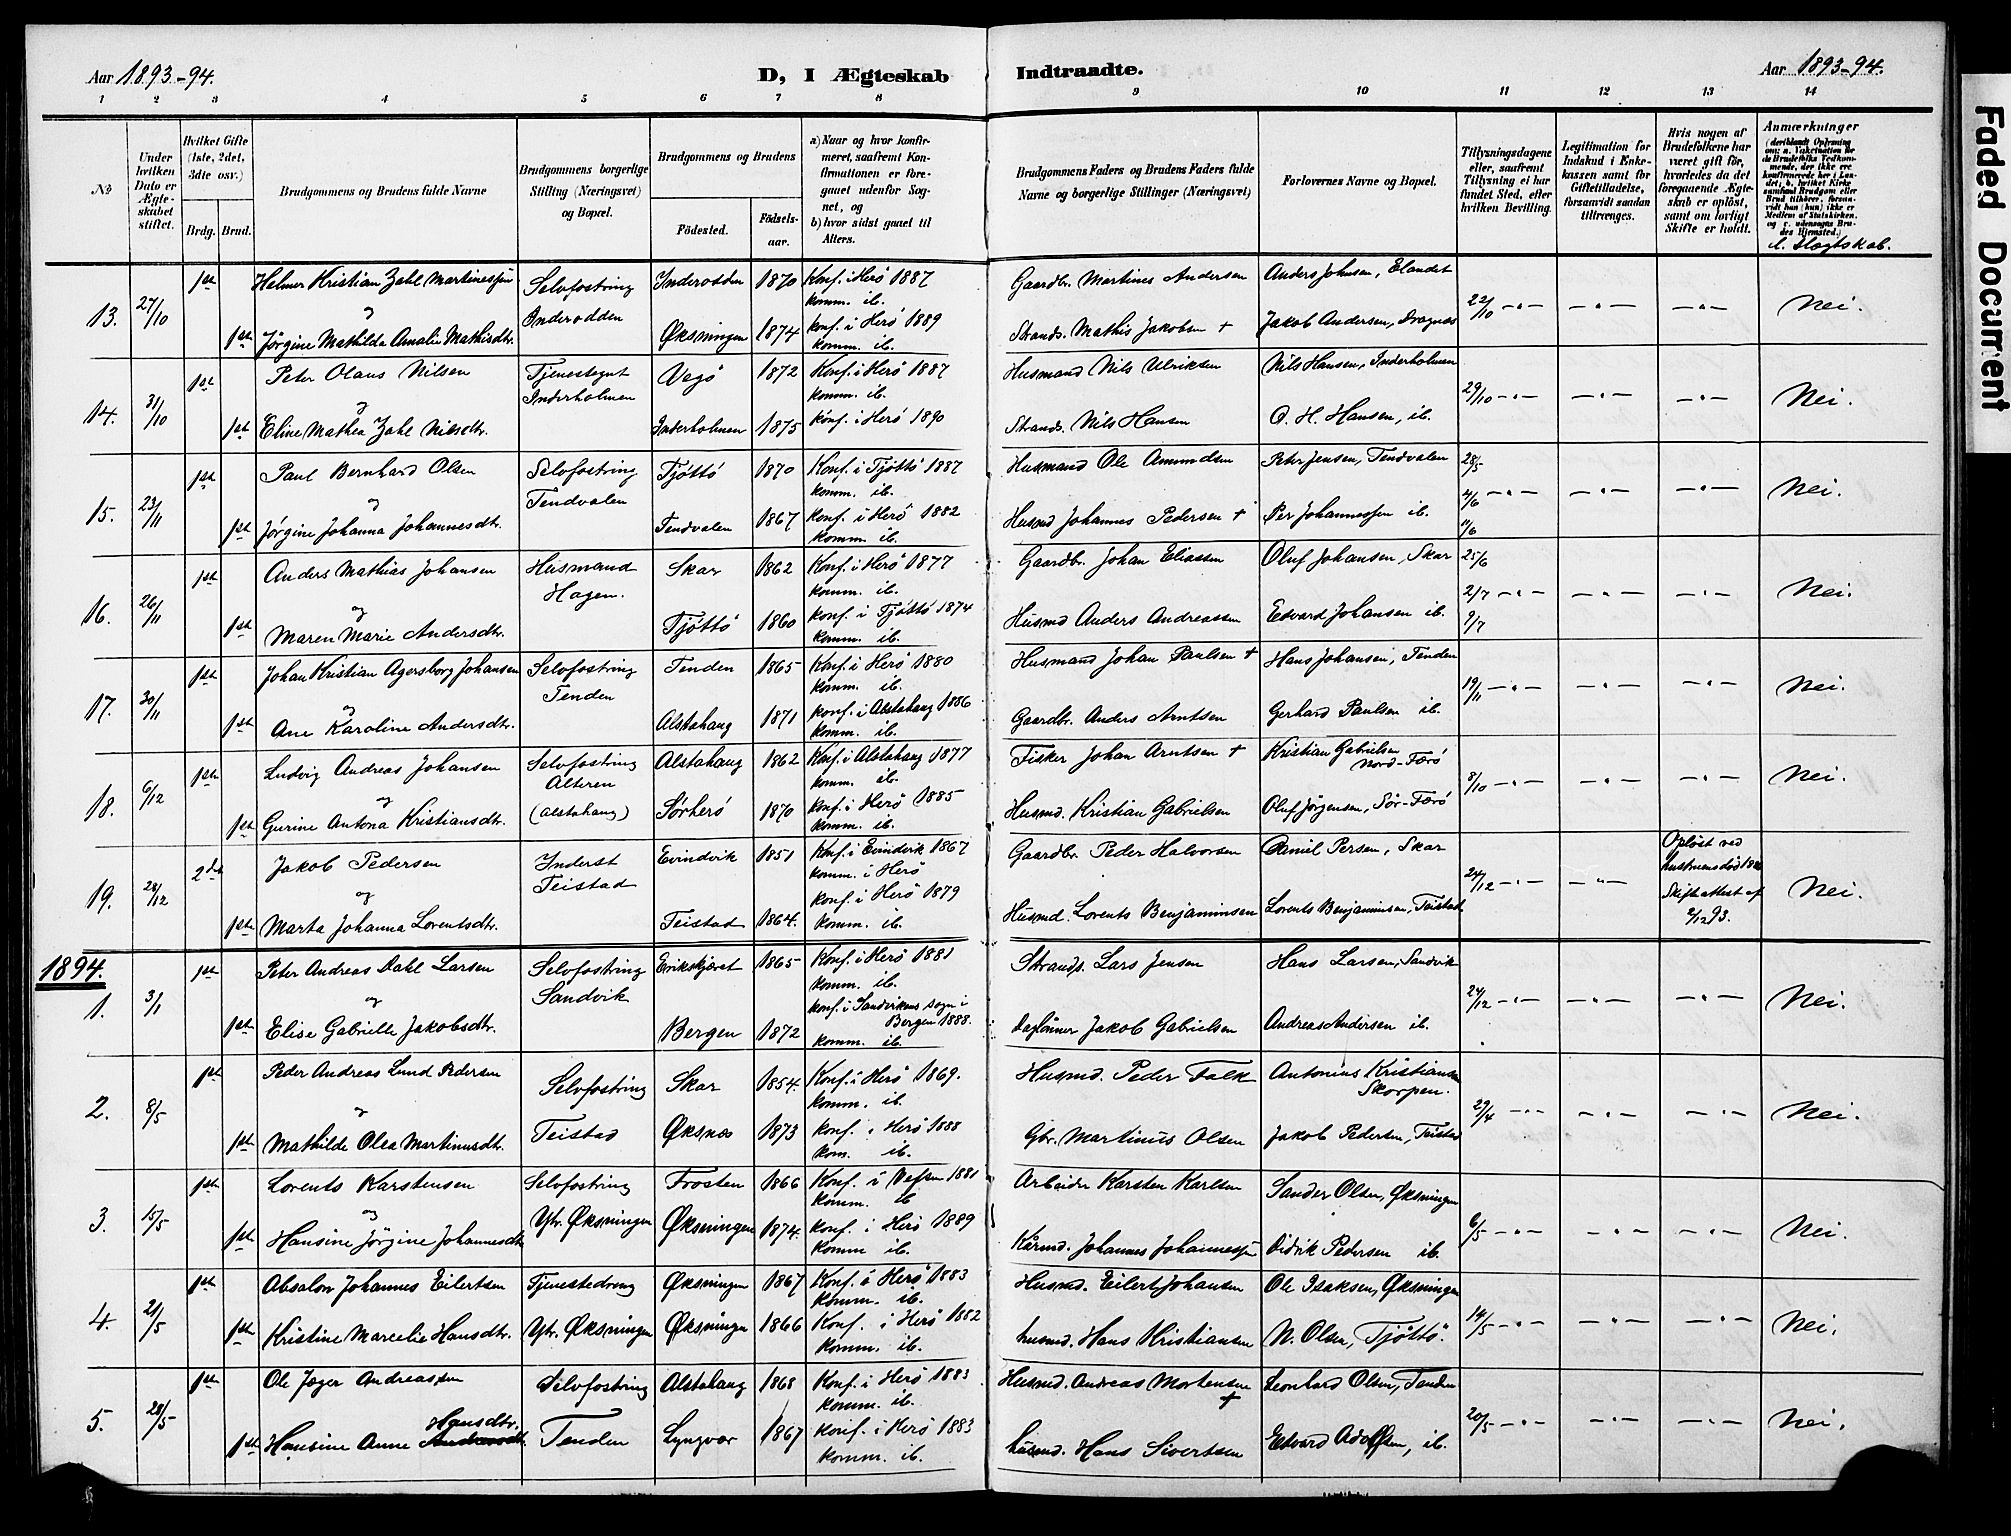 Aar 1893-94.
D, I Ægteskab
Indtraadte.
Aar 1893-94.
1 2 3 4 5 6 7 8 9 10 11 12 13 14
№
Under hvilken Dato er Ægteskabet stiftet.
Hvilket Gifte (1ste, 2det, 3dte osv.)
Brdg. Brud.
Brudgommens og Brudens fulde Navne
Brudgommens borgerlige Stilling (Næringsvei) og Bopæl.
Brudgommens og Brudens
Fødested.
Fødselsaar.
a) Naar og hvor konfirmeret, saafremt Konfirmationen er foregaaet udenfor Sognet, og
b) hvor sidst gaaet til Alters.
Brudgommens Faders og Brudens Faders fulde Navne og borgerlige Stillinger (Næringsvei)
Forlovernes Navne og Bopæl.
Tillysningsdagene eller, saafremt Tillysning ei har fundet Sted, efter hvilken Bevilling.
Legitimation for Indskud i Enkekassen samt for Giftetilladelse, forsaavidt saadan tiltrænges.
Hvis nogen af Brudefolkene har været gift før, hvorledes da det foregaaende Ægteskab er opløst, samt om lovligt Skifte er holdt.
Anmærkninger
13. 27/10 1ste Helmer Kristian Zahl Martinessen Selvfostring Inderodden 1870 Konf. i Herö 1887 Gaardbr. Martines Andersen Anders Johnsen, Elandet 22/10 Nei.
og Inderodden komm. ib.
1ste Jørgine Mathilda Amalie Mathisdtr. Øksningen 1874 konf. i Herö 1889 Strands. Mathis Jakobsen + Jakob Andersen, Dragnæs
komm. ib.
14. 31/10 1ste Peter Olaus Nilsen Tjenestegut Vegö 1872 Konf. i Herö 1887 Husmand Nils Ulriksen Nils Hansen, Inderholmen 29/10 Nei.
og Inderholmen komm. ib.
1ste Eline Mathea Zahl Nilsdtr. Inderholmen 1875 konf. i Herö 1890 Strands. Nils Hansen O. H. Hansen, ib.
15. 23/11 1ste Paul Bernhard Olsen Selvfostring Tjöttö 1870 Konf. i Tjöttö 1887 Husmand Ole Amundsen Peter Jensen, Tendvalen 28/5 4/6 11/6 Nei.
og Tendvalen komm. ib.
1ste Jørgine Johanna Johannesdtr. Tendvalen 1867 konf. i Herö 1882 Husmd Johannes Pedersen + Per Johannessen ib.
komm. ib.
16. 26/11 1ste Anders Mathias Johansen Husmand Skar 1862 Konf. i Herö 1877 Gaardbr. Johan Eliassen Oluf Johansen, Skar 25/6 2/7 9/7 Nei.
og Hagen. komm. ib.
1ste Maren Marie Andersdtr. Tjöttö 1860 konf. i Tjöttö 1874 Husmd Anders Andreassen Edvard Johansen ib.
komm. ib.
17. 30/11 1ste Johan Kristian Agersborg Johansen Selvfostring Tenden 1865 Konf. i Herö 1880 Husmand Johan Paulsen + Hans Johansen, Tenden 19/11 Nei.
og Tenden komm. ib.
1ste Ane Karoline Andersdtr. Alstahaug 1871 konf. i Alstahaug 1886 Gaardbr. Anders Arntsen Gerhard Paulsen ib.
komm. ib.
18. 6/12 1ste Ludvig Andreas Johansen Selvfostring Alstahaug 1862 Konf. i Alstahaug 1877 Fisker Johan Arntsen + Kristian Gabrielsen Nord-Færö 8/10 Nei.
og Alteren komm. ib.
1ste Gurine Antona Kristiansdtr. (Alstahaug) Sörherö 1870 konf. i Herö 1885 Husmd. Kristian Gabrielsen Oluf Jørgensen, Sör-Færö
komm. ib.
19. 28/12 2det Jakob Pedersen Inderst Evindvik 1851 Konf. i Evindvik 1867 Gaardbr Peder Halvorsen Daniel Persen, Skar 24/12 Opløst ved hustruens död Skifteattest af 2/12 93. Nei.
og Teistad komm. i Herö
1ste Marta Johanna Lorentsdtr. Teistad 1864. konf. i Herö 1879 Husmd. Lorents Benjaminsen Lorents Benjaminsen, Teistad
komm. ib.
1894.
1. 3/1 1ste Peter Andreas Dahl Larsen Selvfostring Erikskjæret 1865 Konf. i Herö 1881 Strands. Lars Jensen Hans Larsen, Sandvik 24/12 Nei.
og Sandvik komm. ib.
1ste Elise Gabrielle Jakobsdtr. Bergen 1872 konf. i Sandvikens sogn i Bergen 1888. Daglönner Jakob Gabrielsen Andreas Andersen ib.
komm. ib.
2. 8/5 1ste Peder Andreas Lund Pedersen Selvfostring Skar 1854. Konf. i Herö 1869. Husmd. Peder Falk Antonius Kristiansen Skorpen. 29/4 Nei.
og komm. ib.
1ste Mathilde Olea Martinusdtr. Teistad Øksnæs 1873 konf. i Herö 1888 Gbr. Martinus Olsen Jakob Pedersen, Teistad
kom. ib.
3. 15/5 1ste Lorents Karstensen Selvfostring Frosten 1866 Konf. i Vefsen 1881 Arbeider Karsten Karlsen Sander Olsen, Øksningen 6/5 Nei.
og komm. ib
1ste Hansine Jørgine Johannesdtr Ytr. Øksningen Øksningen 1874. konf. i Herö 1889 Kårmd. Johannes Johannessen Didrik Pedersen ib.
komm ib.
4. 21/5 1ste Absalon Johannes Eilertsen Tjenestedreng Øksningen 1867 Konf. i Herö 1883 Husmd. Eilert Johansen Ole Isaksen, Øksningen 14/5 Nei.
komm. ib.
1ste Kristine Marcelie Hansdtr. Ytr. Øksningen Øksningen 1866 Konf. i Herö 1882 husmd. Hans Kristiansen N. Olsen, Tjöttö.
komm. ib.
5. 28/5 1ste Ole Jæger Andreassen Selvfostring Alstahaug 1868 Konf. i Herö 1883 Husmd. Andreas Mortensen + Leonhard Olsen, Tenden 20/5 Nei.
komm. ib.
Hansdtr.
1ste Hansine Anne Andersdtr. Tenden Lyngvær 1867 konf. i Herö 1883 husmd. Hans Sivertsen Edvard Adolfsen, ib.
komm. ib.
Faded Document